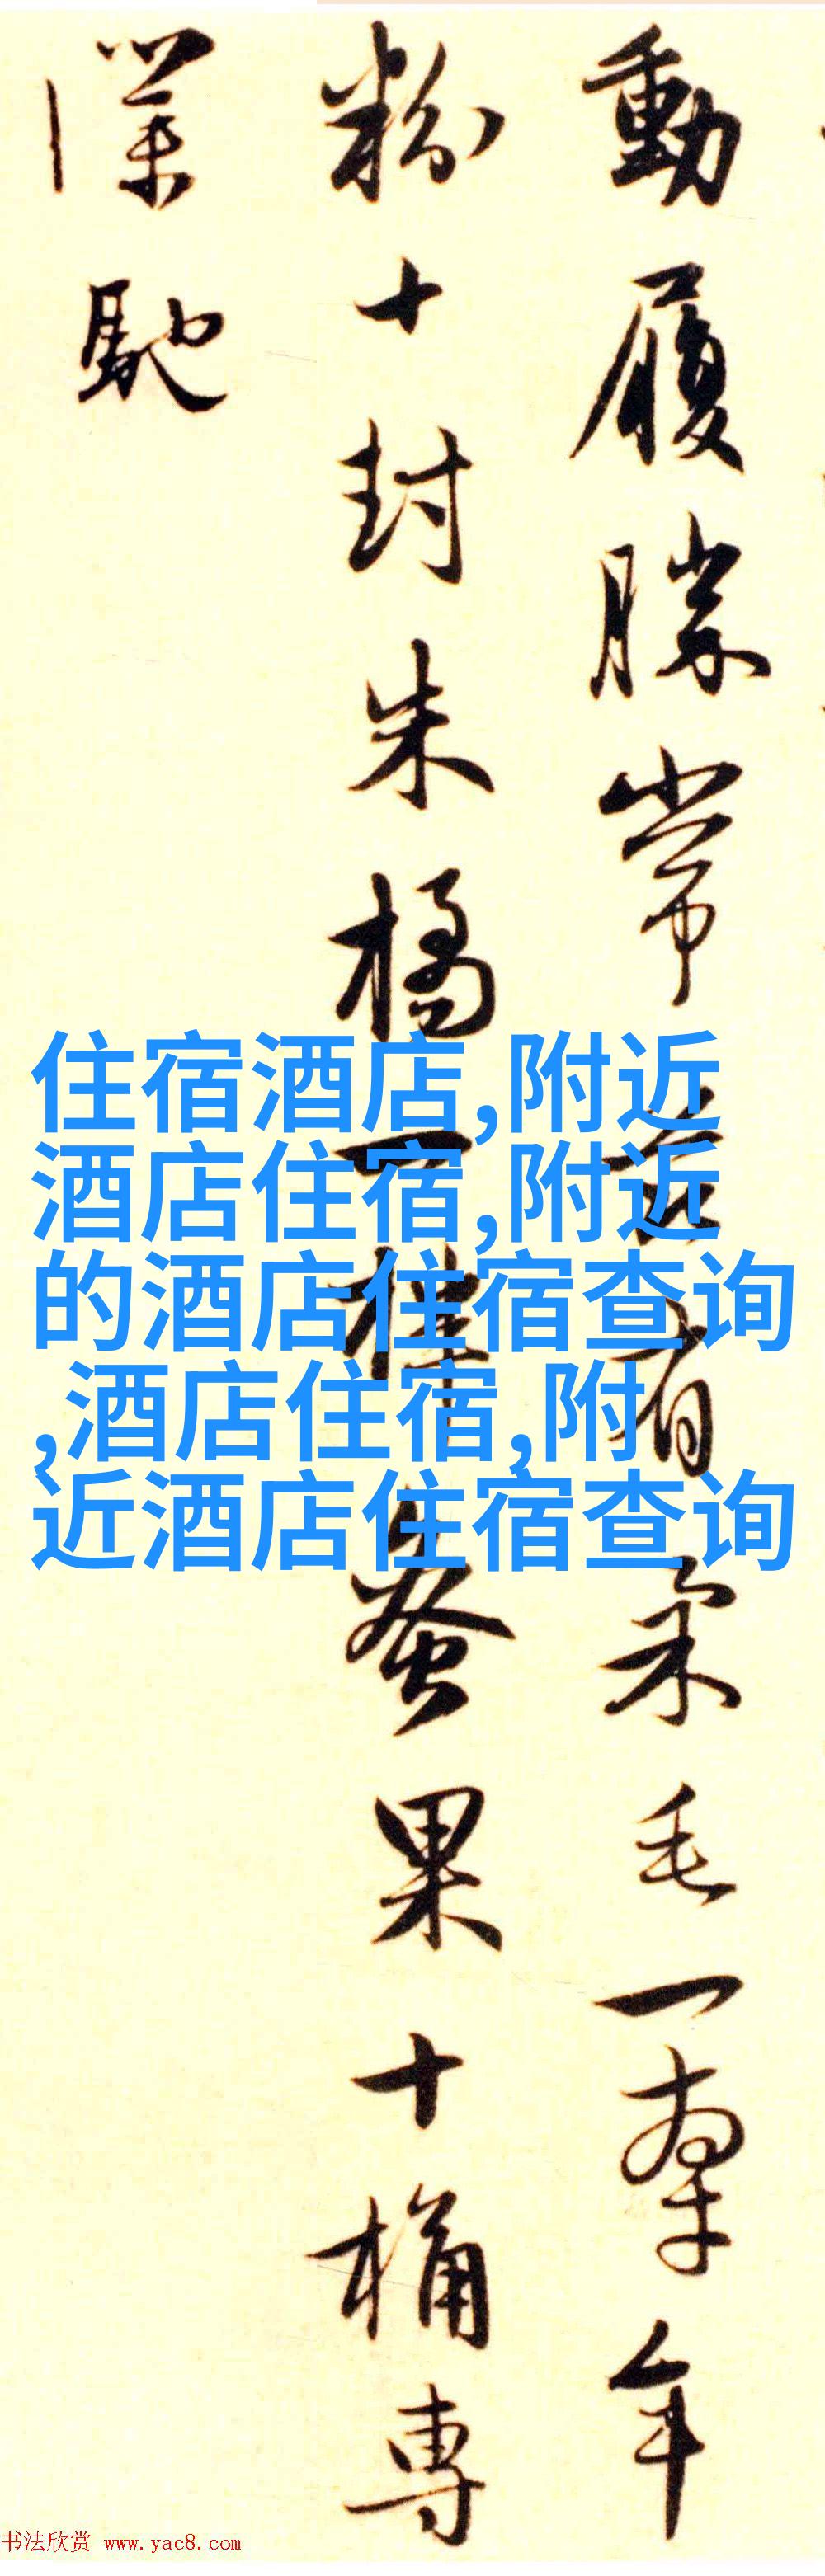 動履勝常
有柔毛一牽年
粉十封朱橘
蚕果十桶專
馳
住宿酒店,附近
酒店住宿,附近
的酒店住宿查询
,酒店住宿,附
近酒店住宿查询
书法欣赏 www.yac8.com